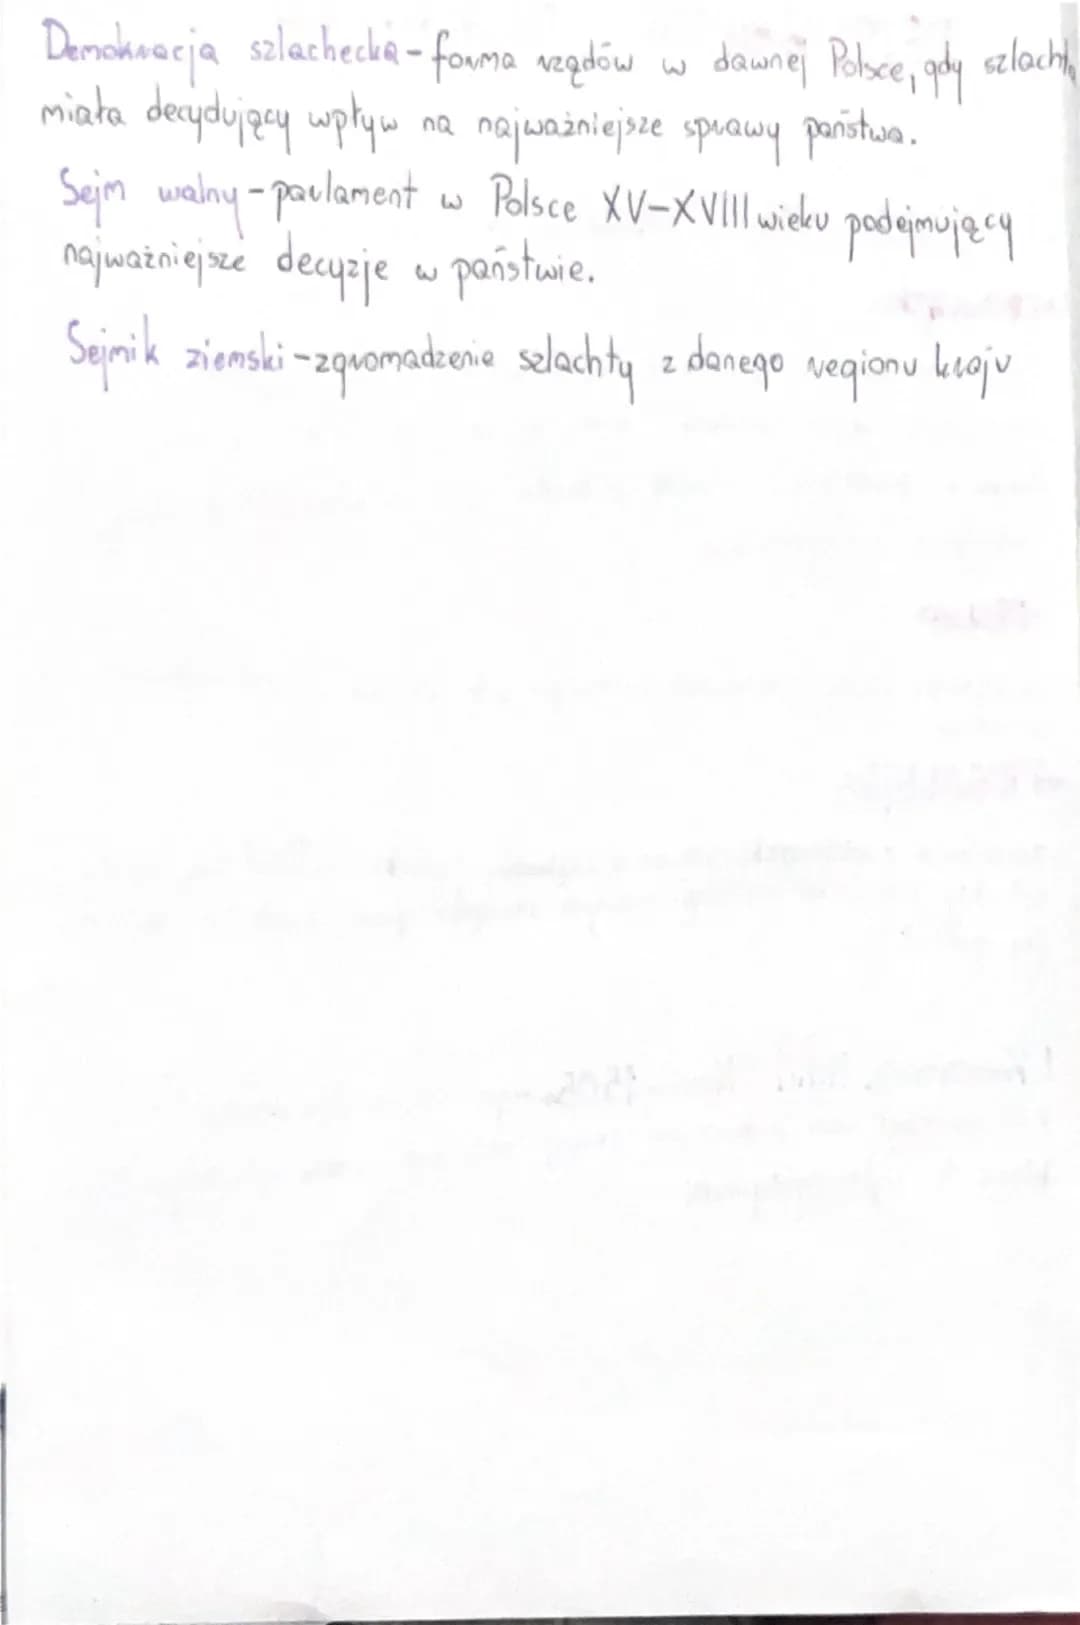 Demokracja szlachecka - forma rządów w dawnej Polsce, gdy szlachta
miała decydujący wpływ na najważniejsze sprawy państwa.
Sejm walny - parlament w Polsce XV-XVIII wieku podejmujący
najważniejsze decyzje w państwie.
Sejmik ziemski - zgromadzenie szlachty z danego regionu kraju